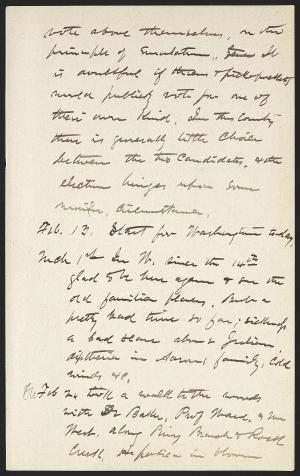 vote above themselves, on the
principle of Emulation. It
is doubtful if thieves & pickpockets
would publicly vote for one of
their own kind. In this County
there is generally little choice
between the two candidates, & the
election hinges upon some
circumstance.
Feb. 13. Start for Washington today.
Mch 1st In W. since the 14th
glad to be here again & see the
old familiar places. But a
pretty hard time so far; sickness
a bad scare about Julian
diptheria in Aarons family, Cold
winds &c.
Feb 24 took a walk to the woods
with Dr Baker, Prof Ward, & Mr
West. along Piny Branch & Rock
Creek, Hepaticas in bloom